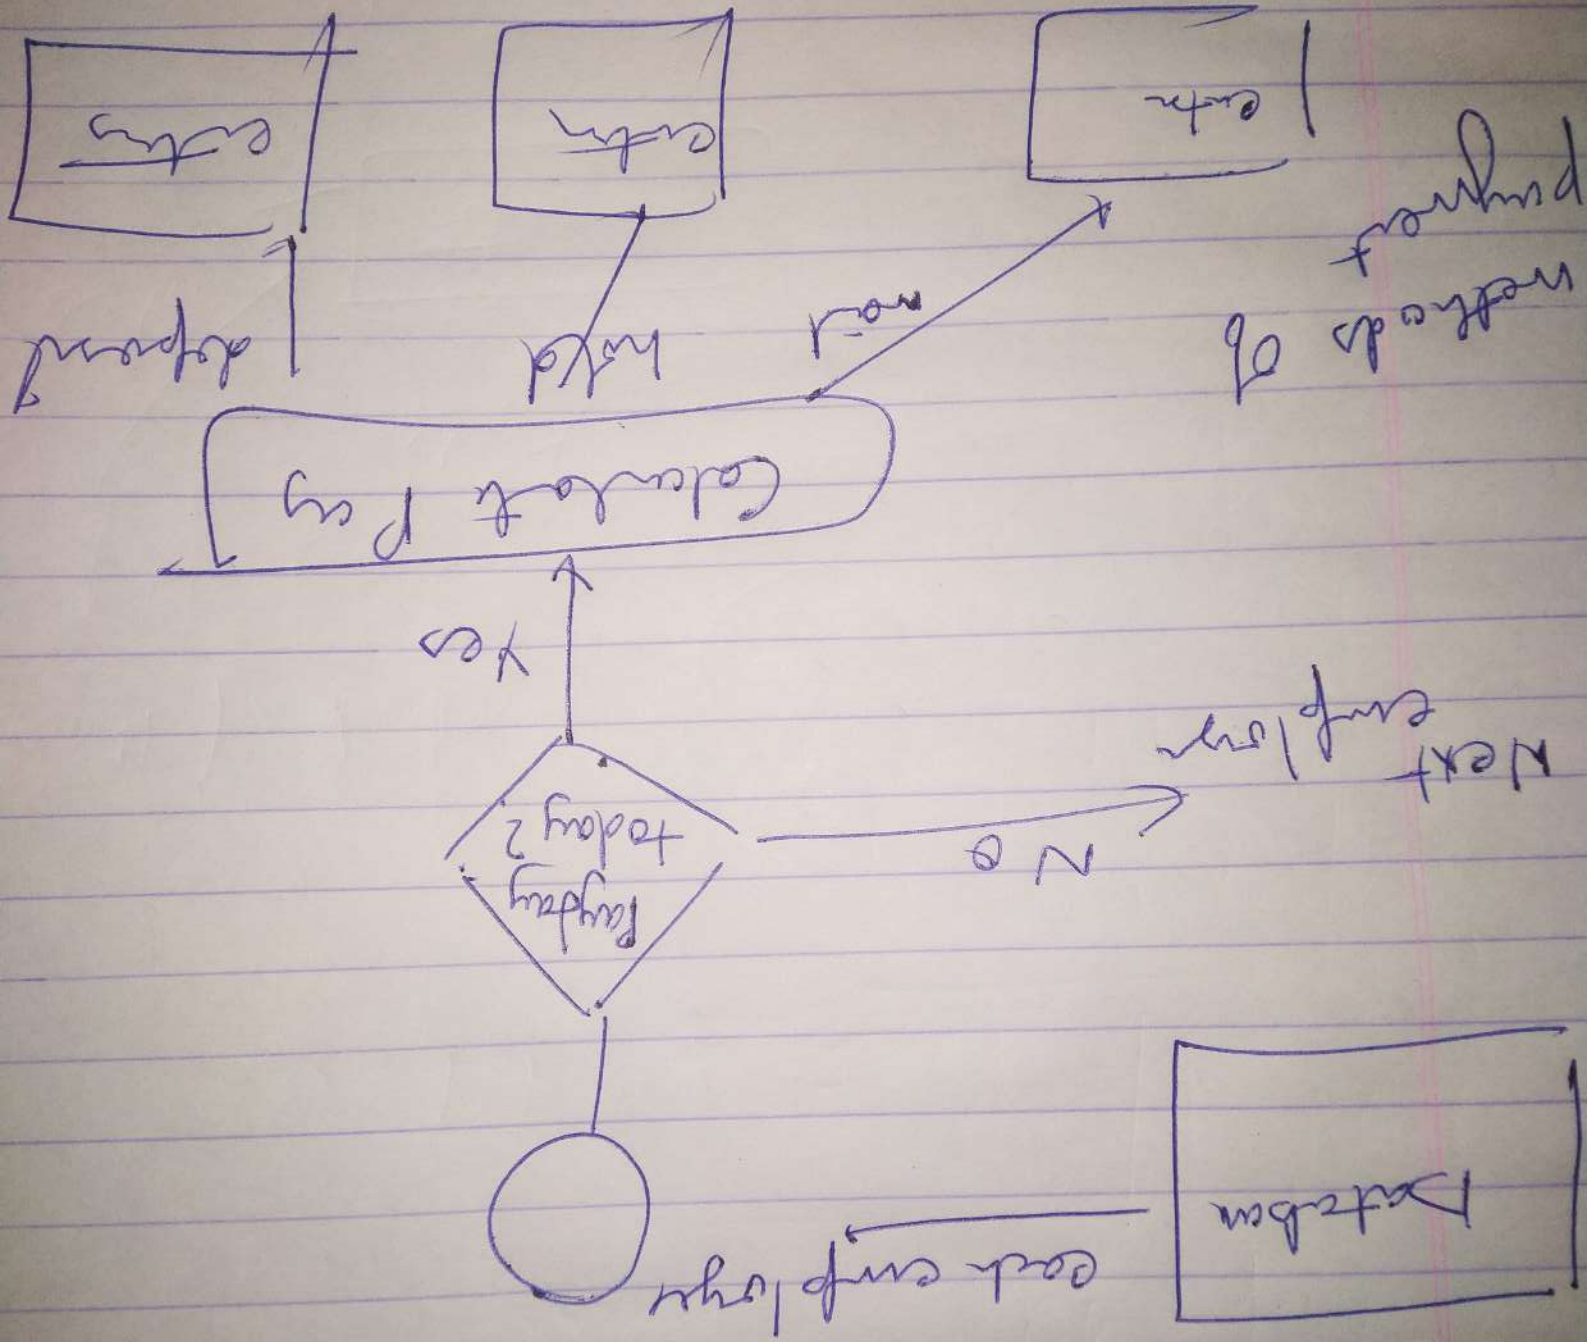 Database
each employee
Payday
today?
No
Next
employee
Yes
Calculate Pay
methods of
payment
mail
hold
deposit
entry
entry
entry